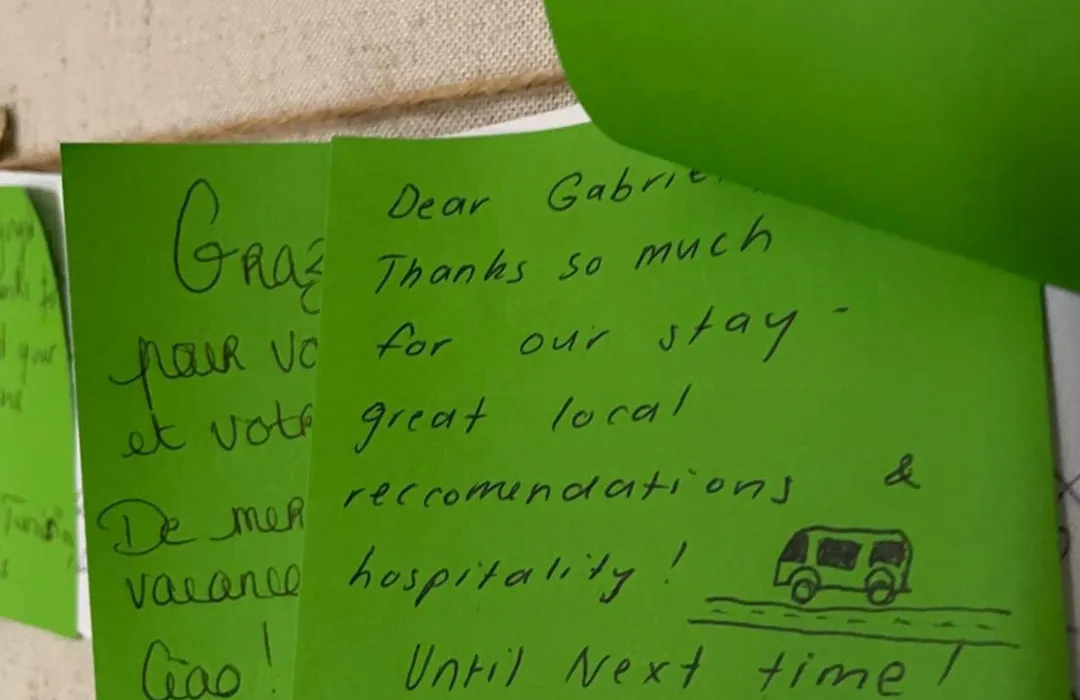 your
Graz
pour vo
et vot
De mer
vacance
Ciao!
Dear Gabrie
Thanks so much
for our stay -
great local
reccomendations &
hospitality!
Until Next time!